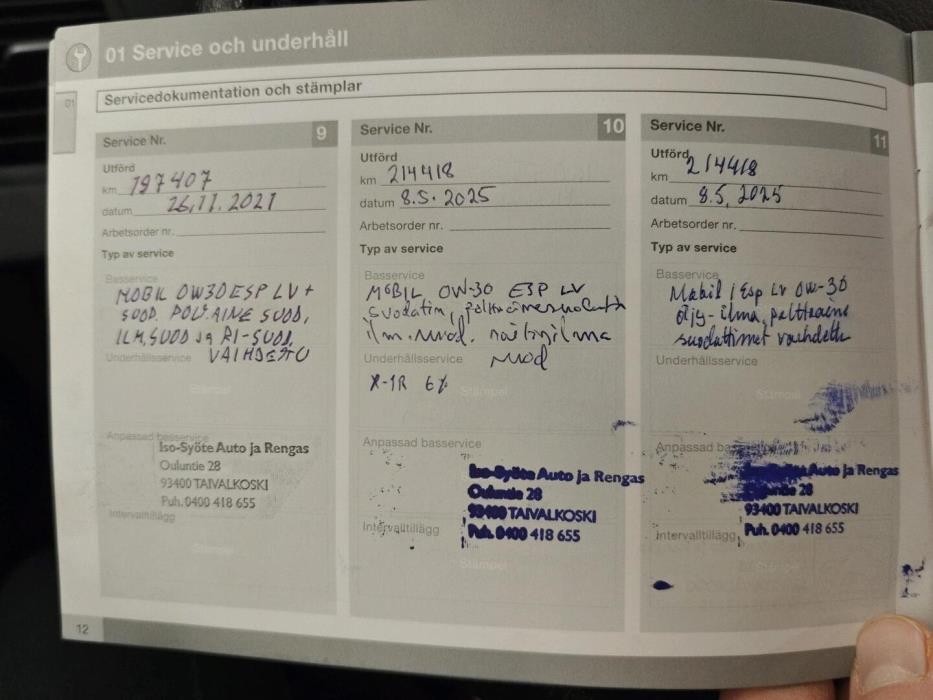 01 Service och underhåll
01
Servicedokumentation och stämplar
Service Nr. 9
Utförd
km 197407
datum 26.11.2021
Arbetsorder nr.
Typ av service
Basservice
MOBIL 0W30 ESP LV +
SUOD. POLT.AINE SUOD,
ILM,SUOD ja RI-SUOD,
VAIHDETTU
Underhållsservice
Stämpel
Anpassad basservice
Iso-Syöte Auto ja Rengas
Ouluntie 28
93400 TAIVALKOSKI
Puh. 0400 418 655
Intervalltillägg
Stämpel
Service Nr. 10
Utförd
km 214418
datum 8.5.2025
Arbetsorder nr.
Typ av service
Basservice
MOBIL 0W-30 ESP LV
suodatin,
ilm.suod. raitisilma
suod
Underhållsservice
X-1R 6%
Stämpel
Anpassad basservice
Iso-Syöte Auto ja Rengas
Ouluntie 28
93400 TAIVALKOSKI
Puh. 0400 418 655
Intervalltillägg
Stämpel
Service Nr. 11
Utförd
km 214418
datum 8.5, 2025
Arbetsorder nr.
Typ av service
Basservice
Mobil 1 Esp LV 0W-30
öljy-ilma, polttoaine
suodattimet vaihdettu
Underhållsservice
Stämpel
Anpassad
Auto ja Rengas
28
93400 TAIVALKOSKI
Puh. 0400 418 655
Intervalltillägg
Stämpel
12